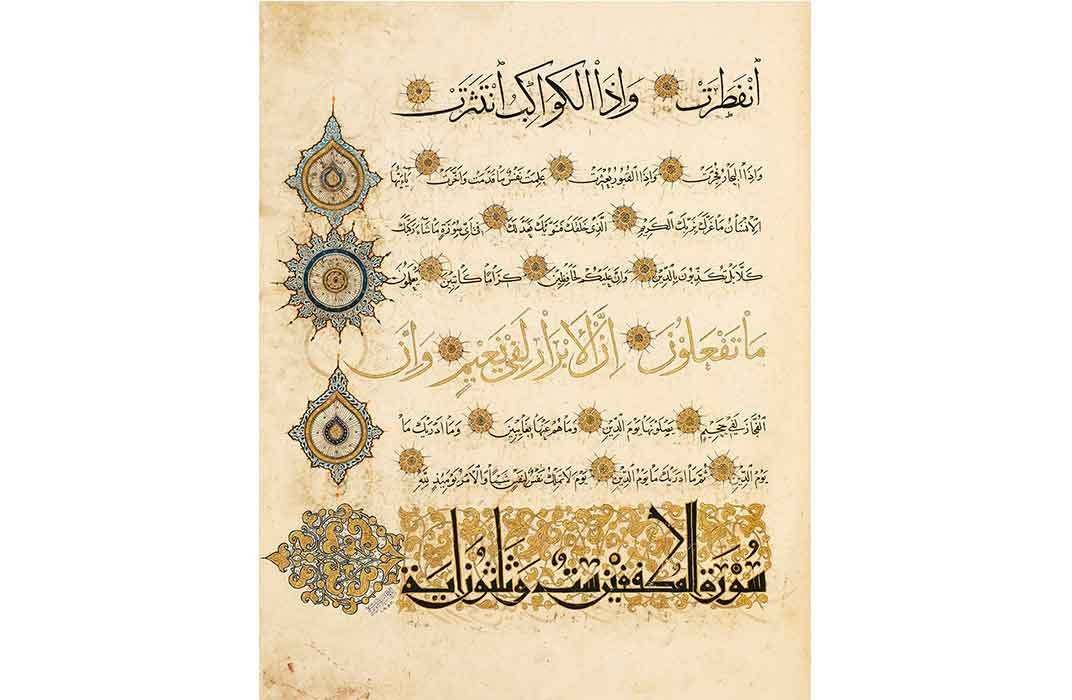 اَنْفَطَرَتْ وَاِذَا الْكَوَاكِبُ انْتَثَرَتْ
وَاِذَا الْبِحَارُ فُجِّرَتْ وَاِذَا الْقُبُورُ بُعْثِرَتْ عَلِمَتْ نَفْسٌ مَا قَدَّمَتْ وَاَخَّرَتْ يَا اَيُّهَا
الْاِنْسَانُ مَا غَرَّكَ بِرَبِّكَ الْكَرِيمِ الَّذِي خَلَقَكَ فَسَوّٰيكَ فَعَدَلَكَ فِي اَيِّ صُورَةٍ مَا شَاءَ رَكَّبَكَ
كَلَّا بَلْ تُكَذِّبُونَ بِالدِّينِ وَاِنَّ عَلَيْكُمْ لَحَافِظِينَ كِرَامًا كَاتِبِينَ يَعْلَمُونَ
مَا تَفْعَلُونَ اِنَّ الْاَبْرَارَ لَفِي نَعِيمٍ وَاِنَّ
الْفُجَّارَ لَفِي جَحِيمٍ يَصْلَوْنَهَا يَوْمَ الدِّينِ وَمَا هُمْ عَنْهَا بِغَايِبِينَ وَمَا اَدْرٰيكَ مَا
يَوْمُ الدِّينِ ثُمَّ مَا اَدْرٰيكَ مَا يَوْمُ الدِّينِ يَوْمَ لَا تَمْلِكُ نَفْسٌ لِنَفْسٍ شَيْئًا وَالْاَمْرُ يَوْمَئِذٍ لِلّٰهِ
سُورَةُ الْمُطَفِّفِينَ سِتٌّ وَثَلٰثُونَ اٰيَةً